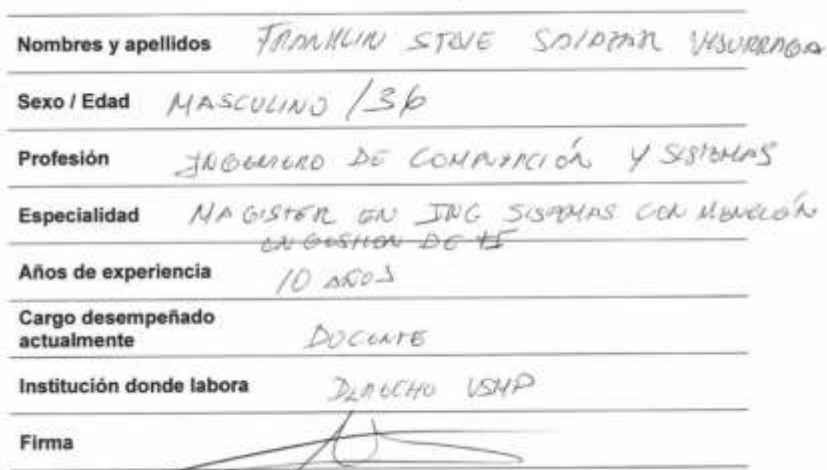 Nombres y apellidos FRANKLIN STEVE SALAZAR VISURRAGA
Sexo / Edad MASCULINO / 36
Profesión INGENIERO DE COMPUTACIÓN Y SISTEMAS
Especialidad MAGISTER EN ING SISTEMAS CON MENCIÓN
EN GESTION DE TI
Años de experiencia 10 AÑOS
Cargo desempeñado
actualmente DOCENTE
Institución donde labora DERECHO USMP
Firma